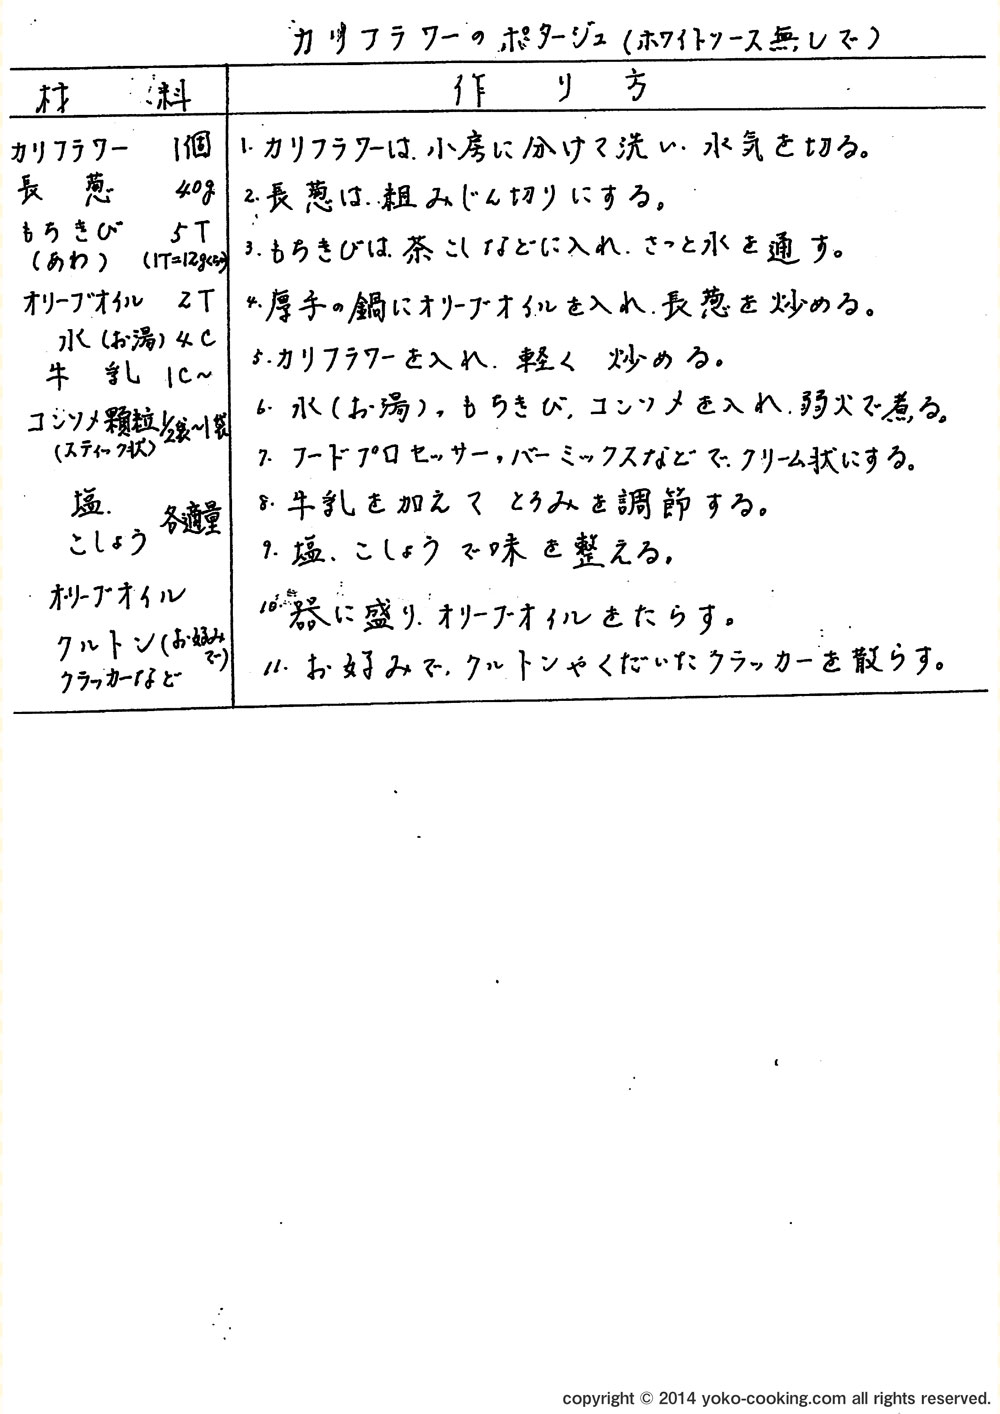 カリフラワーのポタージュ(ホワイトソース無しで)
材料
作り方
カリフラワー 1個
長葱 40g
もちきび 5T
(あわ) (1T=12gくらい)
オリーブオイル 2T
水(お湯) 4C
牛乳 1C〜
コンソメ顆粒 1/2袋〜1袋
(スティック状)
塩.
こしょう 各適量
オリーブオイル
クルトン(お好みで)
クラッカーなど
1. カリフラワーは、小房に分けて洗い、水気を切る。
2. 長葱は、粗みじん切りにする。
3. もちきびは、茶こしなどに入れ、さっと水を通す。
4. 厚手の鍋にオリーブオイルを入れ、長葱を炒める。
5. カリフラワーを入れ、軽く 炒める。
6. 水(お湯)、もちきび、コンソメを入れ、弱火で煮る。
7. フードプロセッサー、バーミックスなどで、クリーム状にする。
8. 牛乳を加えて とろみを調節する。
9. 塩、こしょうで味を整える。
10. 器に盛り、オリーブオイルをたらす。
11. お好みで、クルトンやくだいたクラッカーを散らす。
copyright © 2014 yoko-cooking.com all rights reserved.